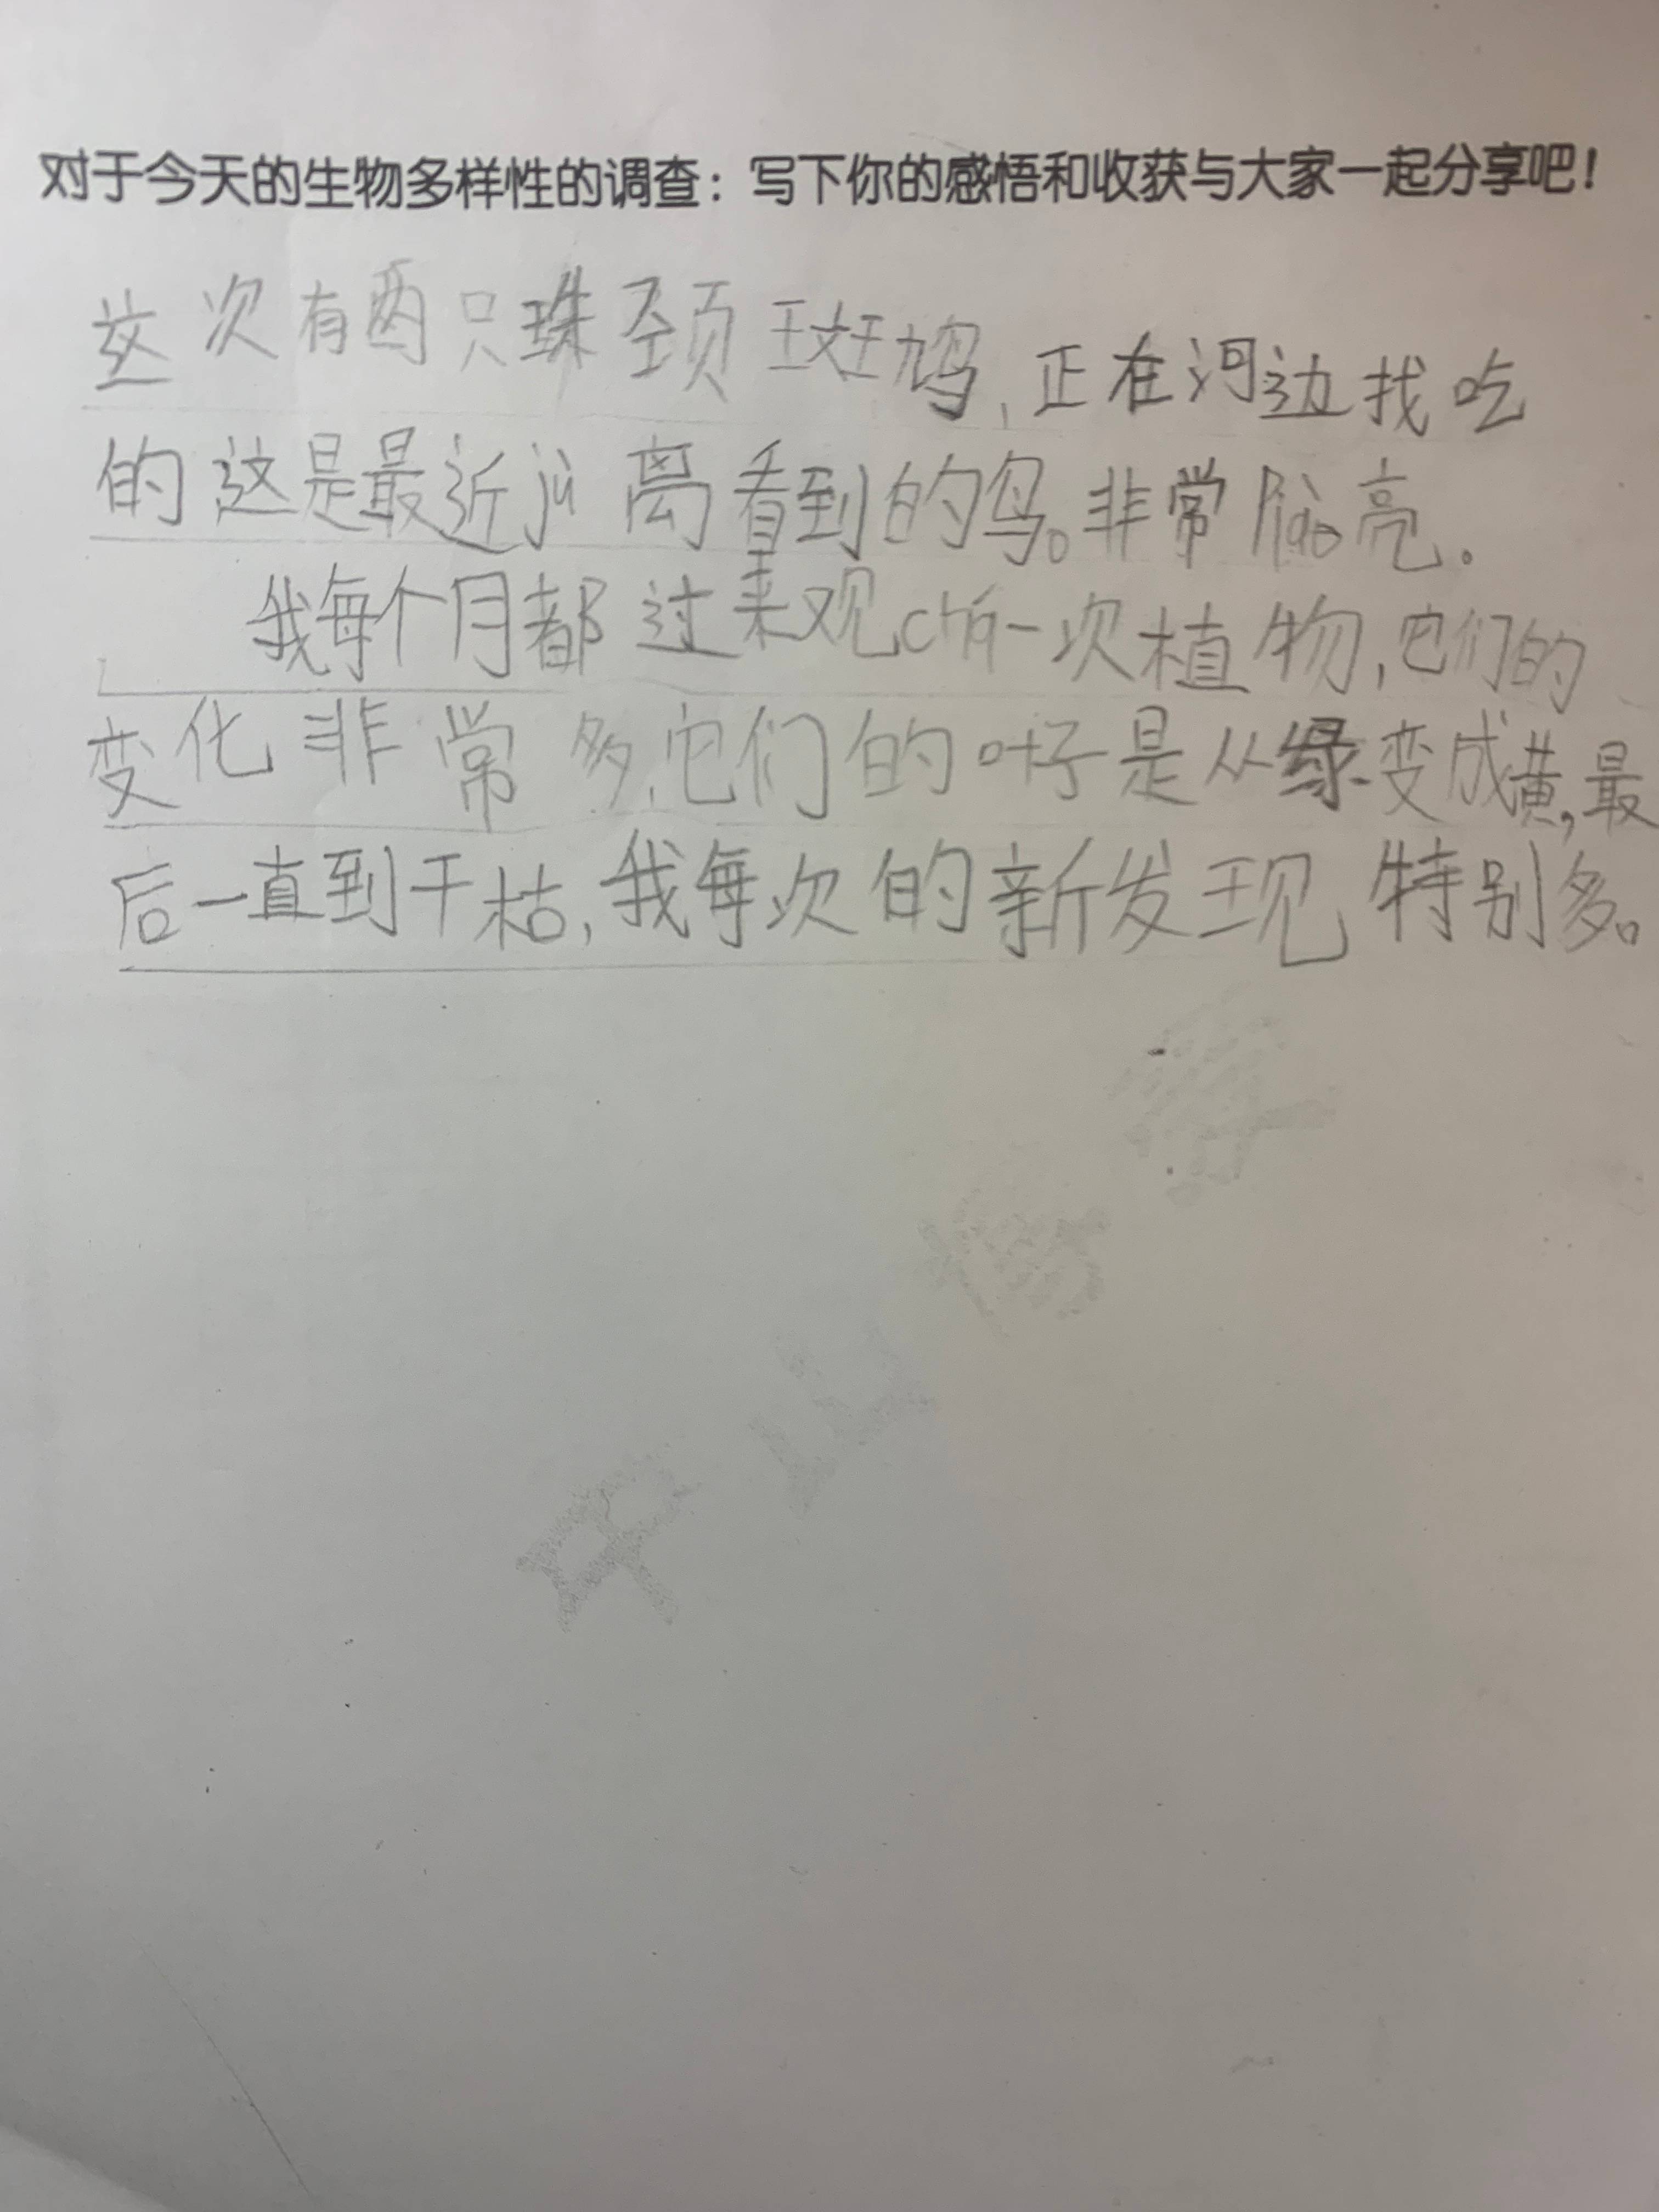 对于今天的生物多样性的调查：写下你的感悟和收获与大家一起分享吧！
这次有两只珠颈斑鸠，正在河边找吃
的这是最近jù离看到的鸟。非常piào亮。
我每个月都过来观chá一次植物，它们的
变化非常多，它们的叶子是从绿变成黄，最
后一直到干枯，我每次的新发现特别多。